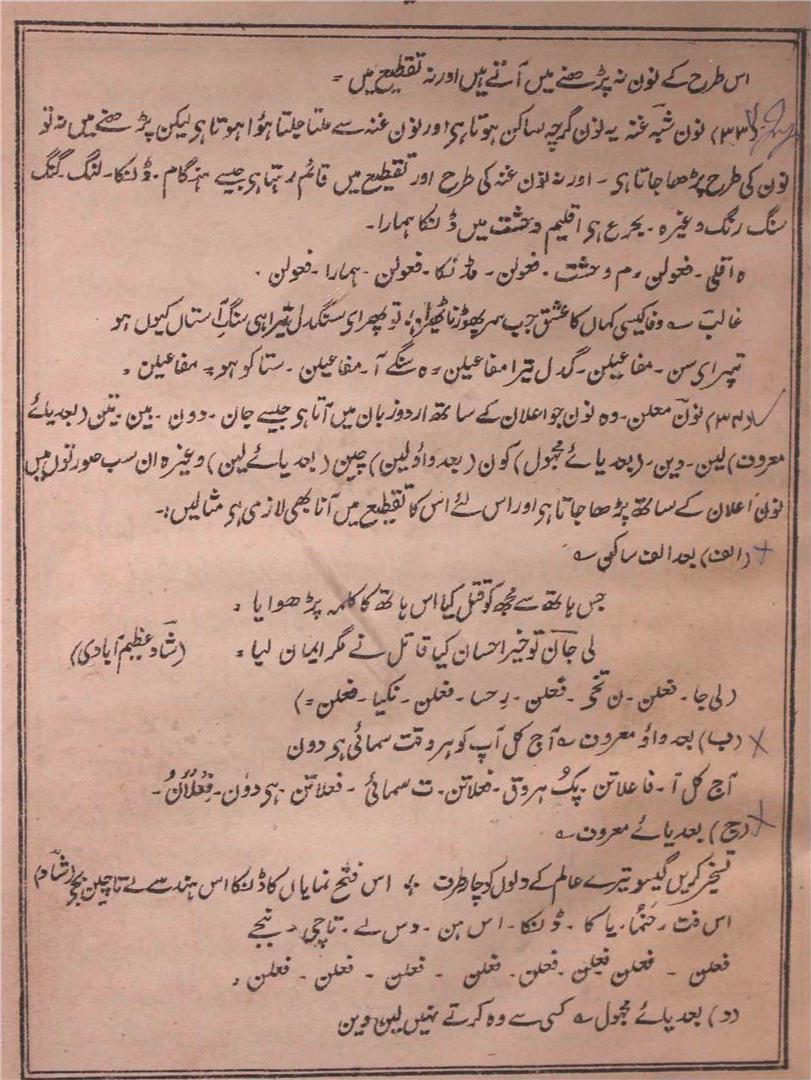 اس طرح کے نون نہ پڑھنے میں آتے ہیں اور نہ تقطیع میں =
(۳۳) نون شبہ غنہ یہ نون گرچہ ساکن ہوتا ہی اور نون غنہ سے ملتا جلتا ہؤا ہوتا ہی لیکن پڑھنے میں نہ تو
نون کی طرح پڑھا جاتا ہی - اور نہ نون غنہ کی طرح اور تقطیع میں قائم رہتا ہی جیسے ہنگام - ڈنکا - لنگ - گنگ
سنگ رنگ وغیرہ - بحر ع ہی اقلیم وحشت میں ڈنکا ہمارا -
ہ اقلی - فعولن م وحشت - فعولن - مڈنکا - فعولن - ہمارا - فعولن -
غالب ؎ وفا کیسی کہاں کا عشق جب سر پھوڑنا ٹھہرا ؛ تو پھر ای سنگدل تیرا ہی سنگِ آستاں کیوں ہو
تپرای سن - مفاعیلن - گدل تیرا مفاعیلن - ہ سنگے آ - مفاعیلن - ستا کو ہو = مفاعیلن =
(۳۴) نون معلن - وہ نون جو اعلان کے ساتھ اردو زبان میں آتا ہی جیسے جان - دون - بین - تین (بعد یائے
معروف) لین - دین - (بعد یائے مجہول) کون (بعد واؤ لین) چین (بعد یائے لین) وغیرہ ان سب صورتوں میں
نون اعلان کے ساتھ پڑھا جاتا ہی اور اس لئے اس کا تقطیع میں آنا بھی لازمی ہی مثالیں :-
(الف) بعد الف ساکن ؎
جس ہاتھ سے مجھ کو قتل کیا اس ہاتھ کا کلمہ پڑھوایا =
لی جان تو خیر احسان کیا قاتل نے مگر ایمان لیا = (شاد عظیم آبادی)
(لی جا - فعلن - ن تخی - فعلن - رحسا - فعلن - نکیا - فعلن =)
(ب) بعد واؤ معروف ؎ آج کل آپ کو ہر وقت سمائی ہی دون
آج کل آ - فاعلاتن - پکُ ہروق - فعلاتن - ت سمائی - فعلاتن - ہی دون - فِعْلَانْ -
(ج) بعد یائے معروف ؎
تسخیر کریں گیسو تیرے عالم کے دلوں کو چار طرف ؛ اس فتح نمایاں کا ڈنکا اس ہند سے لے تا چین بجے (شاد)
اس فت - حَنُما - یا کا - ڈنکا - اس ہن - دس لے - تاچی - نبجے
فعلن - فعلن فعلن - فعلن - فعلن - فعلن - فعلن - فعلن =
(د) بعد یائے مجہول ؎ کسی سے وہ کرتے نہیں لین دین